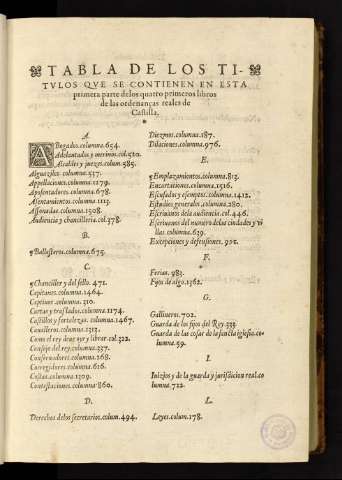 TABLA DE LOS TI-
TVLOS QVE SE CONTIENEN EN ESTA
primera parte de los quatro primeros libros
de las ordenanças reales de
Castilla.
A.
Abogados. columna. 654.
Adelantados y merinos. col. 520.
Alcaldes y juezes. colum. 585.
Alguaziles. columna. 517.
Appellaciones. columna. 1179.
Aposentadores. columna. 678.
Asentamientos. columna. 1113.
Assonadas. columna. 1308.
Audiencia y chancilleria. col. 378.
B.
¶ Ballesteros. columna. 675.
C.
¶ Chanciller y del sello. 471.
Capitanes. columna. 1464.
Captiuos. columna. 310.
Cartas y traslados. columna. 1174.
Castillos y fortalezas. columna. 1467.
Caualleros. columna. 1313.
Como el rey deue oyr y librar. col. 322.
Consejo del rey. columna. 337.
Conseruadores. columna. 268.
Corregidores. columna. 616.
Costas. columna. 1309.
Contestaciones. columna. 860.
D.
Derechos de los secretarios. colum. 494.
Diezmos. columna. 187.
Dilaciones. columna. 976.
E.
¶ Emplazamientos. columna. 813.
Encartaciones. columna. 1516.
Escusados y esemptos. columna. 1412.
Estudios generales. columna. 280.
Escriuanos dela audiencia. col. 446.
Escriuanos del numero delas ciudades y vi
llas. columna. 639.
Excepciones y defensiones. 922.
F.
Ferias. 983.
Fijos de algo. 1362.
G.
Gallineros. 702.
Guarda de los fijos del Rey. 333.
Guarda de las cosas de la sancta iglesia. co-
lumna. 59.
I.
Iuizios y de la guarda y jurisdicion real. co
lumna. 722.
L.
Leyes. colum. 178.